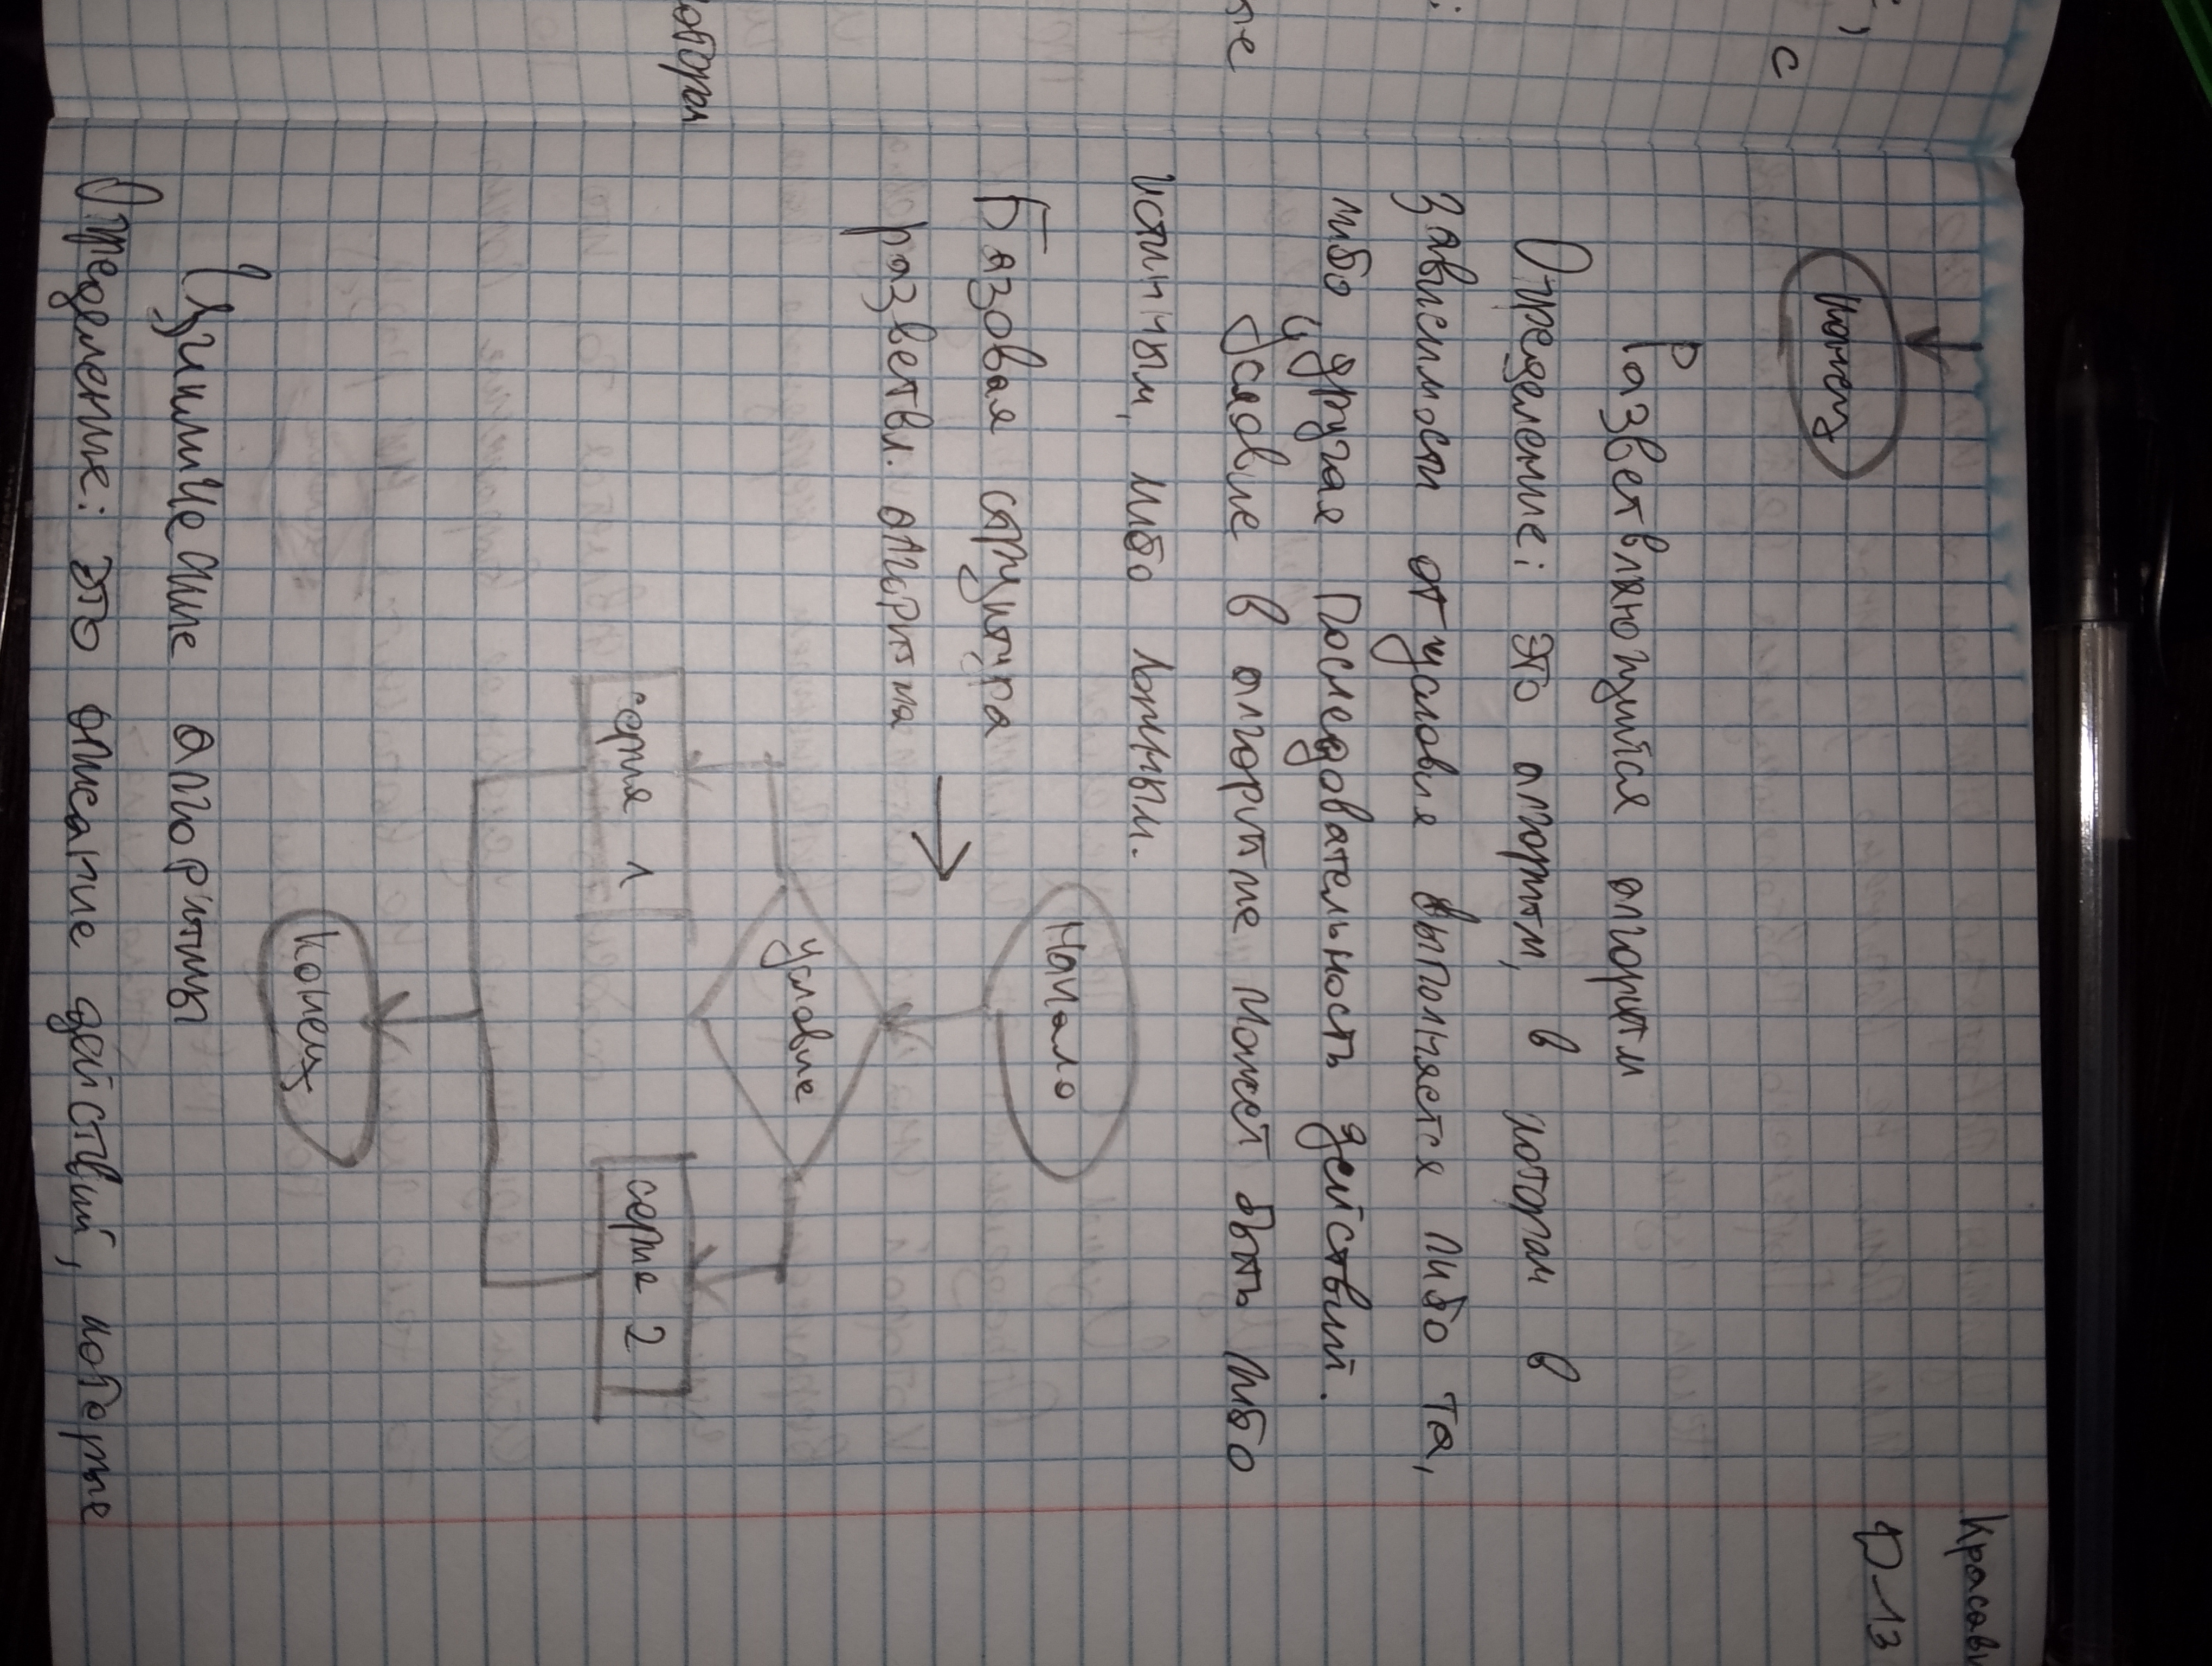 Красави
Ф-13
конец
Разветвляющийся алгоритм
Определение: это алгоритм, в котором в
зависимости от условия выполняется либо та,
либо другая последовательность действий.
Условие в алгоритме может быть либо
истинным, либо ложным.
Базовая структура
разветвл. алгоритма
Начало
условие
серия 1
серия 2
конец
Циклические алгоритмы
Определение: это описание действий, которые
с
котором